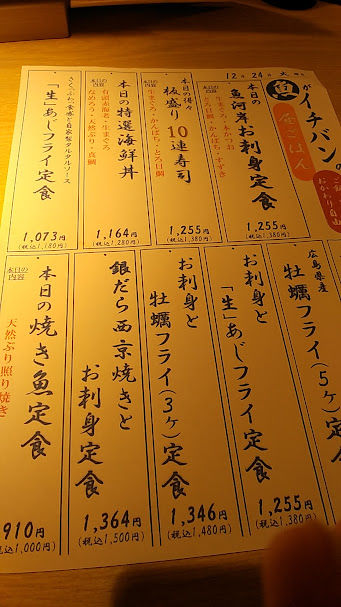 12月24日 火
魚がイチバンの
昼ごはん
おかわり自由
本日の
魚河岸お刺身定食
本日の内容
1,255円
(税込1,380円)
本日の得々
板盛り10連寿司
本日の内容
生まぐろ・かんぱち・とろ目鯛
1,255円
(税込1,380円)
本日の特選海鮮丼
本日の内容
有頭赤海老・生まぐろ
なめろう・天然ぶり・真鯛
1,164円
(税込1,280円)
さくっ、ふわっ食感と自家製タルタルソース
「生」あじフライ定食
1,073円
(税込1,180円)
広島県産
牡蠣フライ(5ヶ)定食
お刺身と
「生」あじフライ定食
1,255円
(税込1,380円)
お刺身と
牡蠣フライ(3ヶ)定食
1,346円
(税込1,480円)
銀だら西京焼きと
お刺身定食
1,364円
(税込1,500円)
本日の焼き魚定食
本日の内容
天然ぶり照り焼き
910円
(税込1,000円)